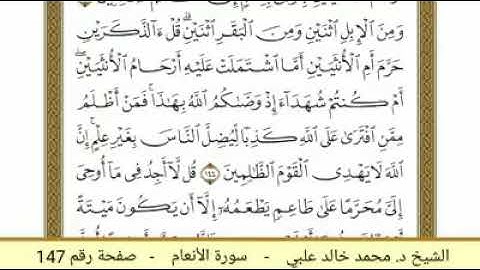 وَمِنَ ٱلْإِبِلِ ٱثْنَيْنِ وَمِنَ ٱلْبَقَرِ ٱثْنَيْنِۗ قُلْ ءَآلذَّكَرَيْنِ
حَرَّمَ أَمِ ٱلْأُنثَيَيْنِ أَمَّا ٱشْتَمَلَتْ عَلَيْهِ أَرْحَامُ ٱلْأُنثَيَيْنِۖ
أَمْ كُنتُمْ شُهَدَآءَ إِذْ وَصَّىٰكُمُ ٱللَّهُ بِهَٰذَاۚ فَمَنْ أَظْلَمُ
مِمَّنِ ٱفْتَرَىٰ عَلَى ٱللَّهِ كَذِبًا لِّيُضِلَّ ٱلنَّاسَ بِغَيْرِ عِلْمٍۚ إِنَّ
ٱللَّهَ لَا يَهْدِى ٱلْقَوْمَ ٱلظَّٰلِمِينَ ١٤٤ قُل لَّآ أَجِدُ فِى مَآ أُوحِىَ
إِلَىَّ مُحَرَّمًا عَلَىٰ طَاعِمٍ يَطْعَمُهُۥٓ إِلَّآ أَن يَكُونَ مَيْتَةً
الشيخ د. محمد خالد علبي - سورة الأنعام - صفحة رقم 147